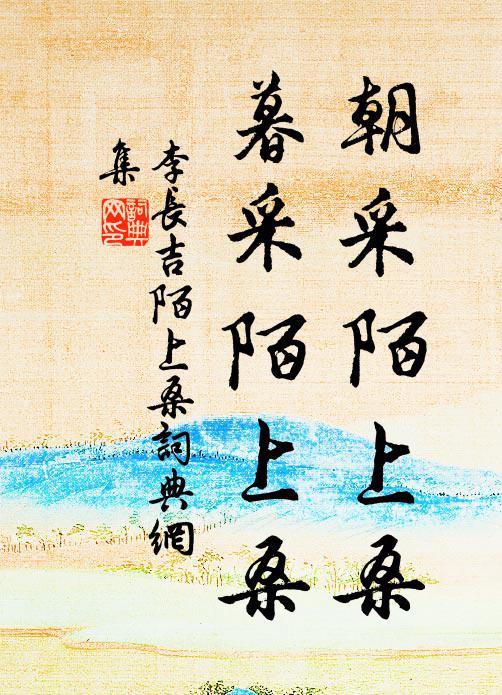 朝采陌上桑
暮采陌上桑
李長吉陌上桑詞典網
集
詞典網印